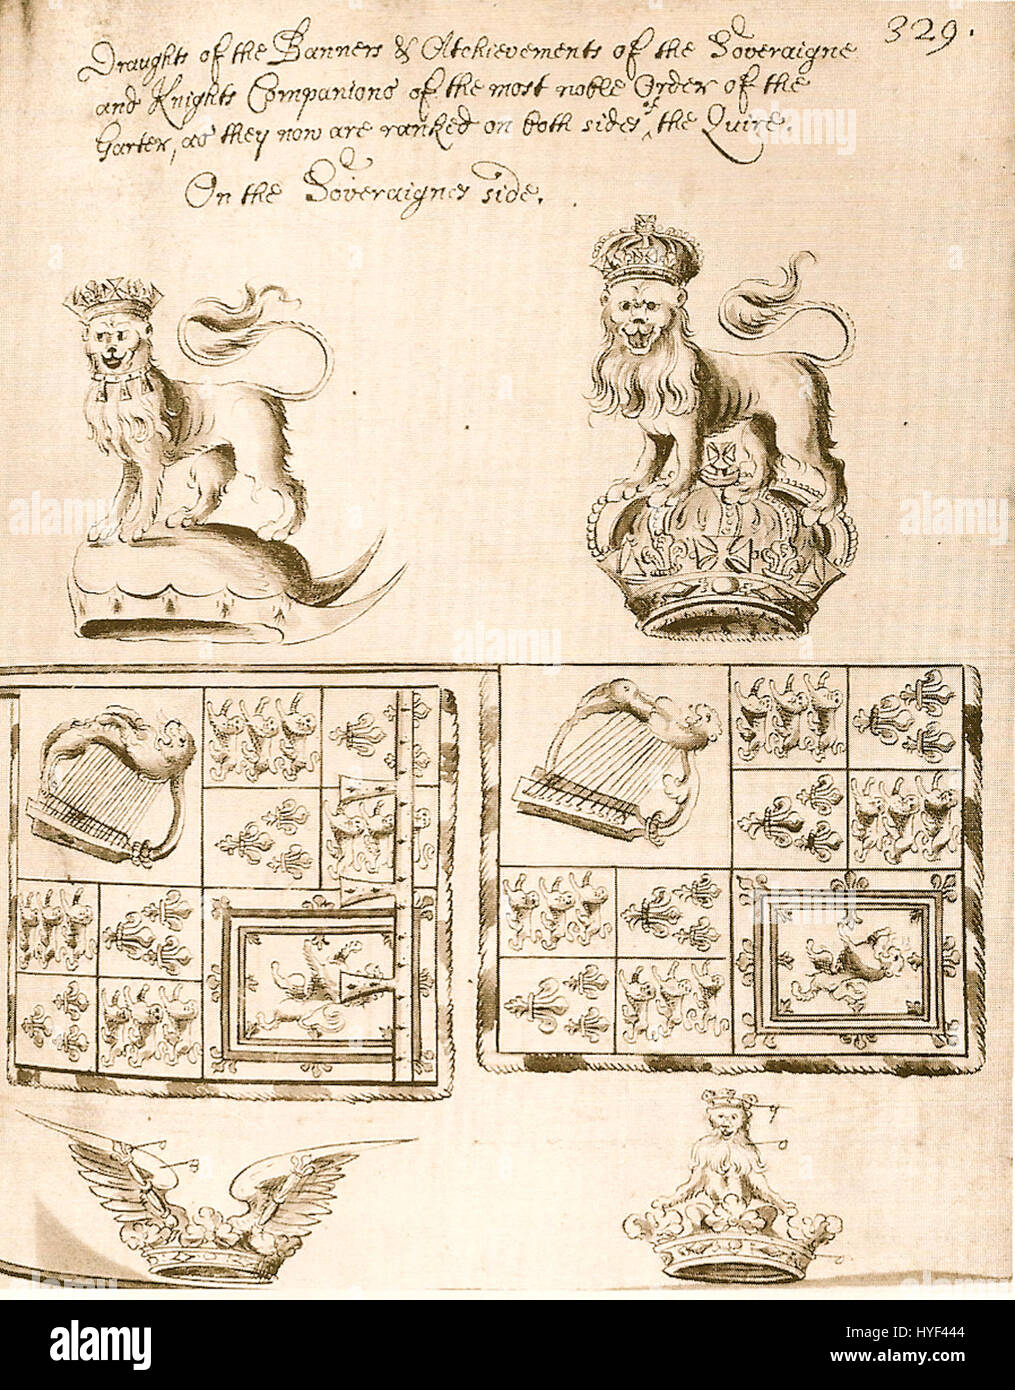 329.
Draughts of the Banners & Atchievements of the Soveraigne
and Knights Companions of the most noble Order of the
Garter, as they now are ranked on both sides of the Quire.
On the Soveraignes side.
alamy
alamy
Image ID: HYF444
www.alamy.com